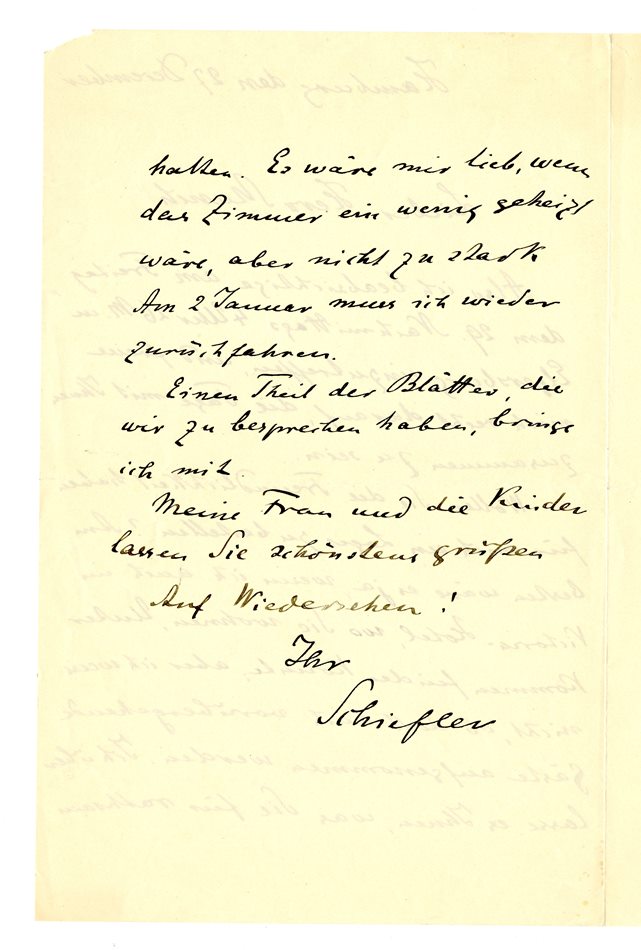 halten. Es wäre mir lieb, wenn
das Zimmer ein wenig geheizt
wäre, aber nicht zu stark
Am 2 Januar muss ich wieder
zurückfahren.
Einen Theil der Blätter, die
wir zu besprechen haben, bringe
ich mit.
Meine Frau und die Kinder
lassen Sie schönstens grüßen
Auf Wiedersehen!
Ihr
Schiefler